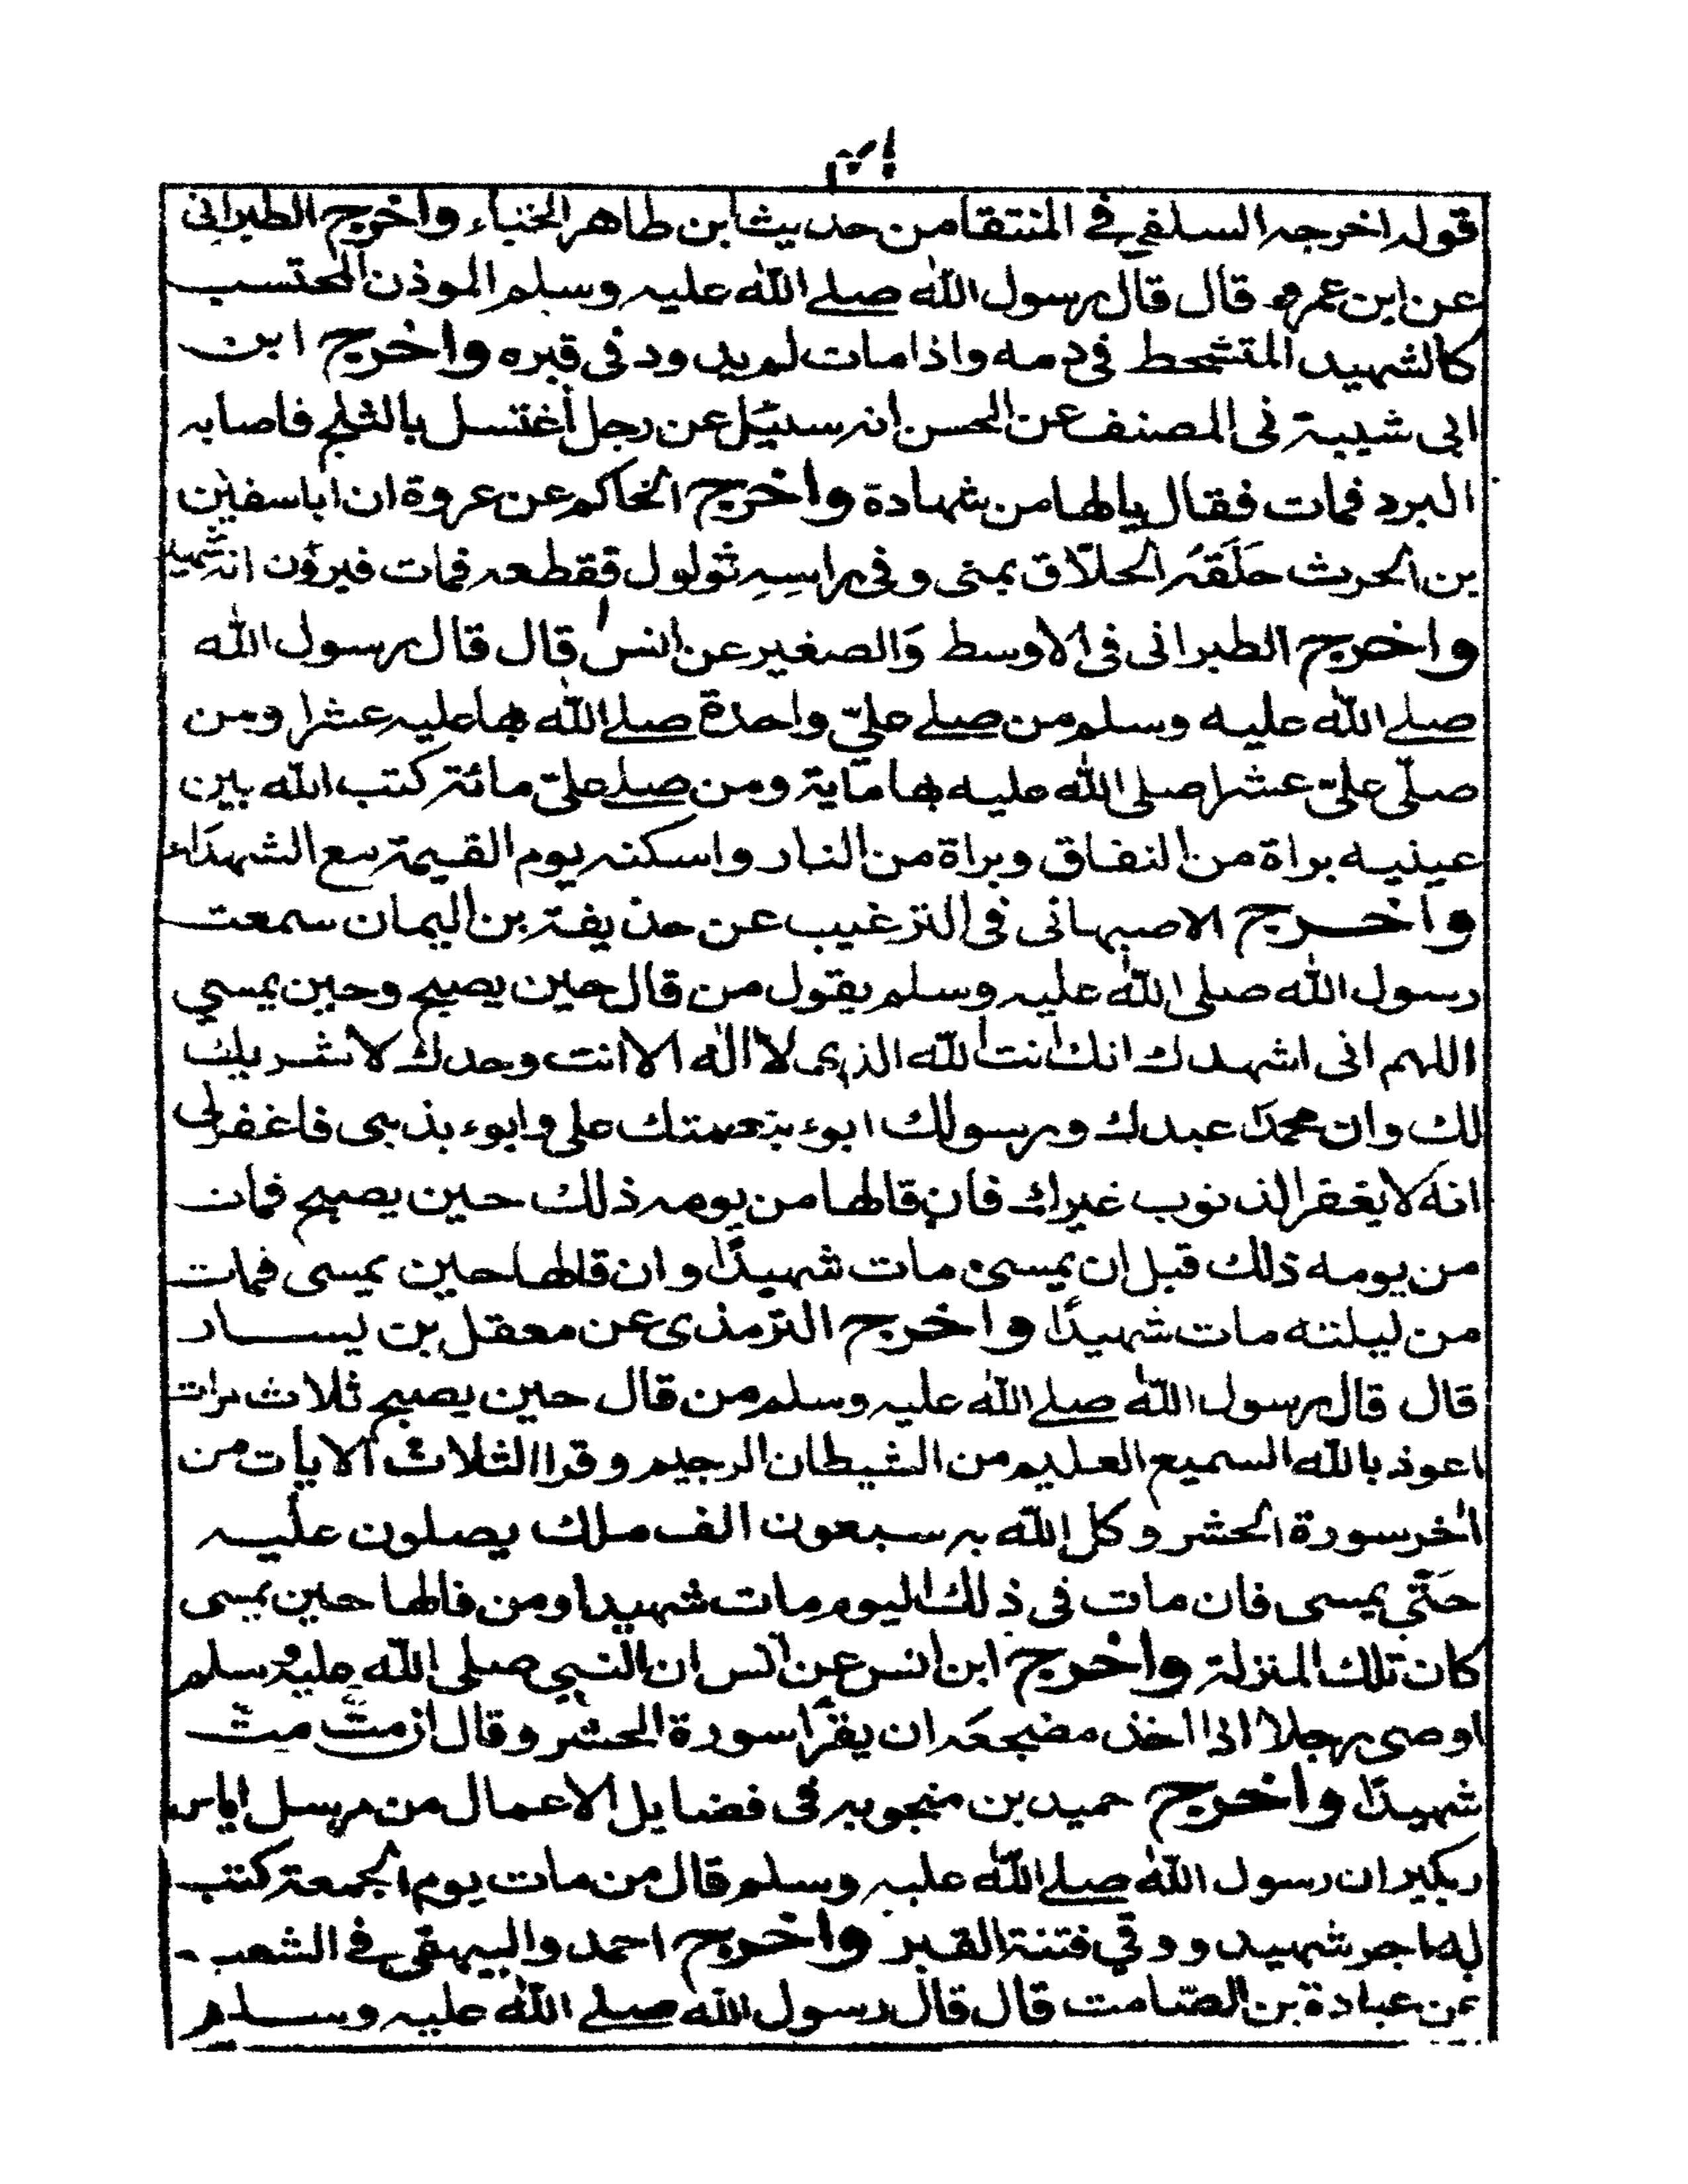 قوله اخرجه السلفي في المنتقا من حديث ابن طاهر الخنباء واخرج الطبراني
عن ابن عمر قال قال رسول الله صلى الله عليه وسلم الموذن المحتسب
كالشهيد المتشحط في دمه واذا مات لم يدود في قبره واخرج ابن
ابي شيبة في المصنف عن الحسن انه سئيل عن رجل أغتسل بالثلج فاصابه
البرد فمات فقال يالها من شهادة واخرج الحاكم عن عروة ان ابا سفين
بن الحرث حَلَقَهُ الحلّاق بمنى وفي راسِهِ ثولول فقطعه فمات فيرؤن انه شهيد
واخرج الطبراني في الاوسط وَالصغير عن انس قال قال رسول الله
صلى الله عليه وسلم من صلى عليّ واحدة صلى الله بها عليه عشرا ومن
صلّى عليّ عشرا صلى الله عليه بها ماية ومن صلى عليّ مائة كتب الله بين
عينيه براة من النفاق وبراة من النار واسكنه يوم القيمة مع الشهدَاء
واخرج الاصبهاني في الترغيب عن حذيفة بن اليمان سمعت
رسول الله صلى الله عليه وسلم يقول من قال حين يصبح وحين يمسي
اللهم اني اشهدك انك انت الله الذي لا اله الا انت وحدك لا شريك
لك وان محمدًا عبدك ورسولك ابوء بنعمتك علي وابوء بذنبي فاغفرلي
انه لا يغفر الذنوب غيرك فان قالها من يومه ذلك حين يصبح فمات
من يومه ذلك قبل ان يمسي مات شهيدًا وان قالها حين يمسى فمات
من ليلته مات شهيدًا واخرج الترمذي عن معقل بن يسار
قال قال رسول الله صلى الله عليه وسلم من قال حين يصبح ثلاث مرات
اعوذ بالله السميع العليم من الشيطان الرجيم وقرا الثلاث الايات من
اٰخر سورة الحشر وكل الله به سبعون الف ملك يصلون عليه
حَتّٰى يمسى فان مات في ذلك اليوم مات شهيدا ومن قالها حين يمسى
كان تلك المنزلة واخرج ابن انس عن انس ان النبي صلى الله عليه وسلم
اوصى رجلا اذا اخذ مضجعَه ان يقرأ سورة الحشر وقال ان متّ متّ
شهيدًا واخرج حميد بن منجويه في فضايل الاعمال من مرسل اياس
ربكير ان رسول الله صلى الله عليه وسلم قال من مات يوم الجمعة كتب
له اجر شهيد ووقي فتنة القبر واخرج احمد والبيهقي في الشعب
عن عبادة بن الصّامت قال قال رسول الله صلى الله عليه وسلم